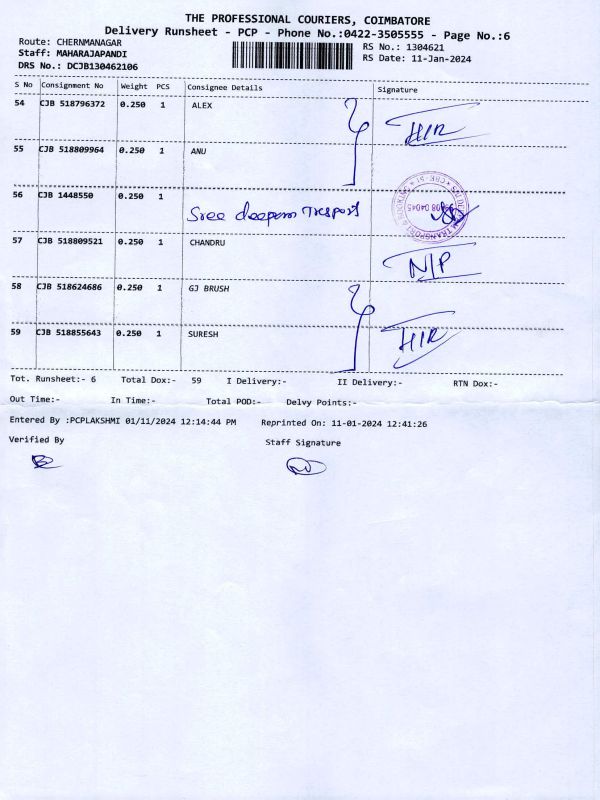 THE PROFESSIONAL COURIERS, COIMBATORE
Delivery Runsheet - PCP - Phone No.:0422-3505555 - Page No.:6
Route: CHERNMANAGAR RS No.: 1304621
Staff: MAHARAJAPANDI RS Date: 11-Jan-2024
DRS No.: DCJB130462106
S No Consignment No Weight PCS Consignee Details Signature
54 CJB 518796372 0.250 1 ALEX
55 CJB 518809964 0.250 1 ANU
56 CJB 1448550 0.250 1
Sree deepam Trasport
57 CJB 518809521 0.250 1 CHANDRU
N/P
58 CJB 518624686 0.250 1 GJ BRUSH
59 CJB 518855643 0.250 1 SURESH
Tot. Runsheet:- 6 Total Dox:- 59 I Delivery:- II Delivery:- RTN Dox:-
Out Time:- In Time:- Total POD:- Delvy Points:-
Entered By :PCPLAKSHMI 01/11/2024 12:14:44 PM Reprinted On: 11-01-2024 12:41:26
Verified By Staff Signature